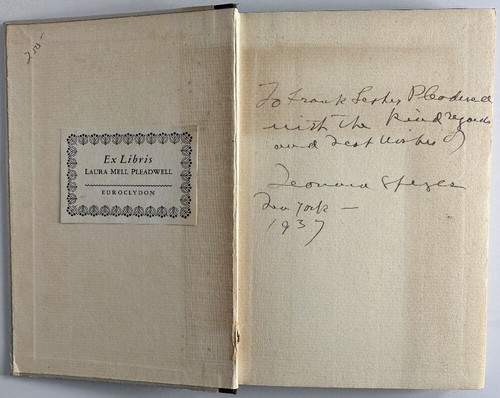 2.50-
Ex Libris
LAURA MELL PLEADWELL
EUROCLYDON
To Frank Lester Pleadwell
with the kind regards
and best wishes of
Leonard
New York -
1937